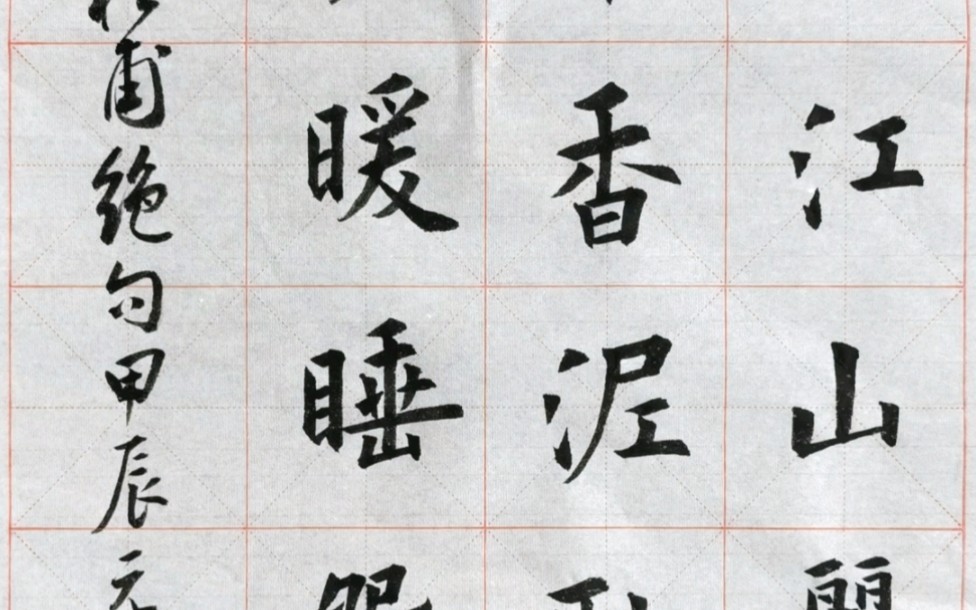 江山麗
香泥
暖睡
甫绝句甲辰元